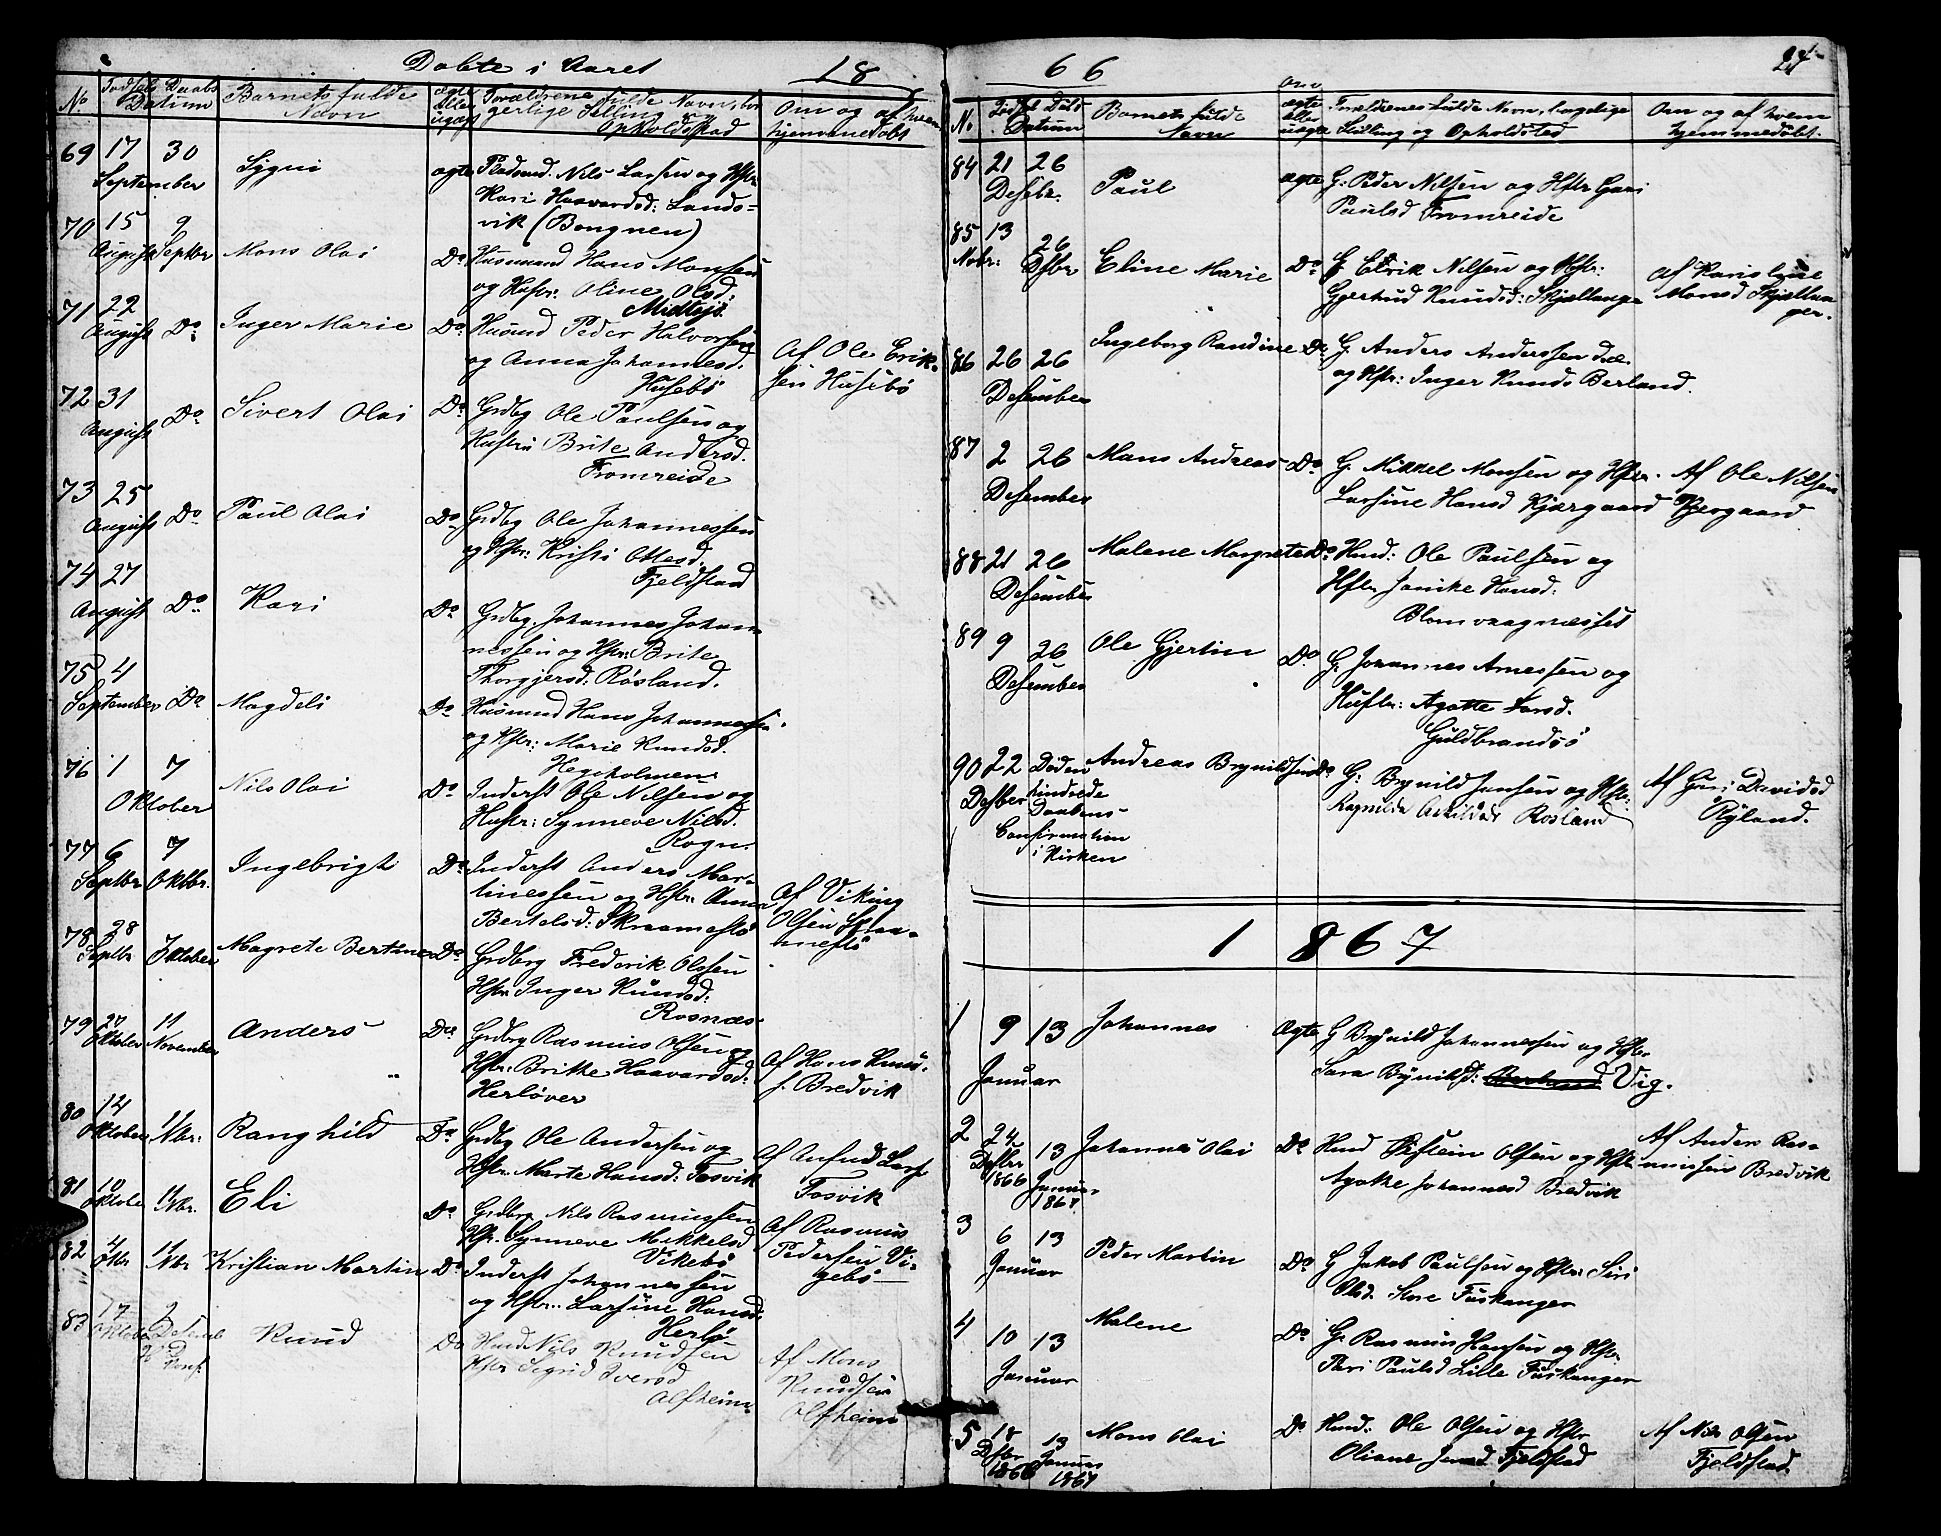 Døbte i Aaret 18
No
Fødsels Daabs
Datum
Barnets fulde
Navn
ægte
eller
uægte
Forældrene fulde Navn, bor
gerlige Stilling og
Opholdsstad
Om og af hvem
hjemmedøbt
69 17 30
September
Sygni
ægte
Pladsmd. Nils Larsen og Hstr
Kari Haavardsd: Lands=
vik (Bongnen)
70 15 9
August Septbr
Mons Olai
Do
Husmand Hans Monsen
og Hstr: Oline Olsd:
Midtøjt
71 22
August Do
Inger Marie
Do
Husmd Peder Halvorsen
og Anna Johannesd.
Husebø
Af Ole Erik-
sen Husebø
72 31
August Do
Sivert Olai
Do
Grdbg Ole Paulsen og
Hustru Brite Andersd.
Fromreide
73 25
August Do
Paul Olai
Do
Grdbg Ole Johannessen
og Hstr: Kristi Ottesd.
Fjeldstad
74 27
August Do
Kari
Do
Grdbg. Johannes Johan-
nessen og Hstr: Brite
Thorgjersd: Røsland.
75 4
September Do
Magdeli
Do
Husmd Hans Johannessen
og Hstr: Marie Knudsd.
Hegoholmen
76 1 7
Oktober
Nils Olai
Do
Inderst Ole Nilsen og
Hustr: Synneve Nilsd.
Rogn
77 6 7
Septbr Oktbr.
Ingebrigt
Do
Inderst Anders Mar-
tinessen og Hstr: Anna
Bertelsd: Skraamestø
Af Viking
Olsen Skraa-
mestø
78 28
Septbr 7 Oktober
Magrete Bertine
Do
Grdbrg Frederik Olsen
Hstr Inger Knudsd:
Rosnæs
79 27 11
Oktober November
Anders
Do
Grdbrg Rasmus Olsen og
Hstr: Britte Haavardsd:
Herløver
Af Hans Knud-
s. Bredvik
80 14 11
Oktober Nbr:
Ranghild
Do
Grdbg Ole Andersen og
Hstr: Marte Hansd: Tosvik
Af Anfind Lars
Tosvik
81 10 11
Oktobe Nbr.
Eli
Do
Grdbrg Nils Rasmussen
Hstr. Synneve Mikkelsd
Vikebø
Af Rasmus
Pedersen Vi-
gebø
82 4 11
Oktbr Nbr
Kristian Martin
Do
Inderst Johannessen
og Hstr: Larsine Hansd.
Herlø
83 17 2
Oktober Desemb
Konf.
Knud
Do
Husmd Nils Knudsen
Hstr Sigrid Iversd
Alfheim
Af Mons
Knudsen
Alfheim
66
24
No
Fødsels Daabs
Datum
Barnets fulde
Navn
om
ægte
eller
uægte
Forældrenes fulde Navn, borgelige
Stilling og Opholdsted
Om og af hvem
hjemmedøbt.
84 21 26
Desebr.
Paul
ægte
G. Peder Nilsen og Hstr Guri
Paulsd Fromreide
85 13 26
Novbr: Dsbr
Eline Marie
Do
G. Elrik Nilsen og Hstr:
Gjertrud Knudsd: Skjællanger
Af Karislyne
Monsd Skjællan
ger.
86 26 26
Desember
Ingeborg Randine
Do
G. Anders Anderssen
og Hstr: Inger Knuds Berland.
87 2 26
Desember
Mans Andreas
Do
G. Mikkel Monsen og Hstr.
Larsine Hansd Kjærgaard
Af Ole Nilsen
Kjergaard
88 21 26
Desember
Malene Margrete
Do
Husmd: Ole Paulsen og
Hstr Janike Hansd:
Blomvaagnæsset
89 9 26
Desember
Ole Gjertin
Do
G. Johannes Arnessen og
Hustr: Agatte Larsd.
Guldbrandsø
90 22
Desbr
Døden
hindrede
Daabens
Confirmation
i Kirken
Andreas Brynildsen
Do
G. Brynild Jensen og Hstr:
Ragnilda Askildsd Rosland
Af Guri Davidsd
Ryland.
1867
1 9 13
Januar
Johannes
Ægte
G Brynild Johannessen og Hstr
Sara Brynilsd: Berland Vig.
2 24 13
Desbr Januar
1866 1867
Johannes Olai
Do
Husmd Østein Olsen og Hstr
Agatte Johannesd Bredvik
Af Anders Ras-
mussen Bredvik
3 6 13
Januar
Peder Martin
Do
G Jakob Paulsen og Hstr: Siri
Olsd. Store Fuskanger
4 10 13
Januar
Malene
Do
G. Rasmus Hansen og Hstr:
Pari Paulsd Lille Fuskanger
5 18 13
Dsbr Januar
1866 1867
Mons Olai
Do
Husmd: Ole Olsen og Hstr
Oliane Jensd Fjeldstad
Af Nils Olsen
Fjeldstad.